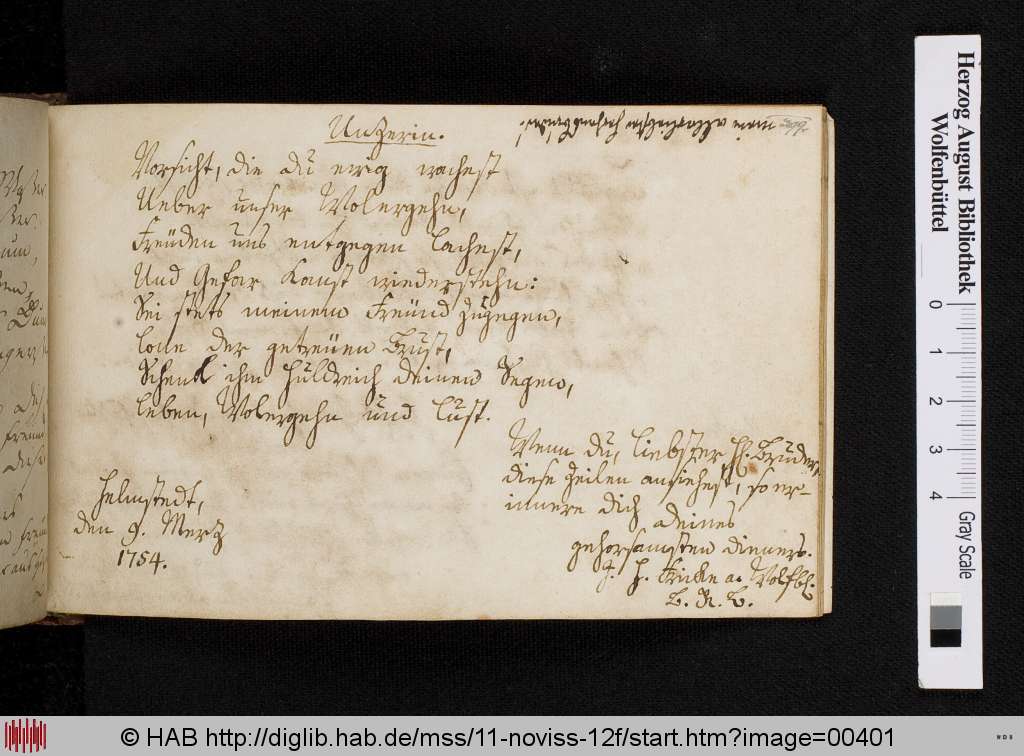 Unzerin.
Vorsicht, die du ewig wachest
Ueber unser Wolergehn,
Freüden uns entgegen lachest,
Und Gefar kanst wiederstehn:
Sei stets meinem Freünd zugegen,
der getreüen Brust,
Schenk ihm huldreich deinen Segen,
Leben, Wolergehn und Lust.
Wenn du, liebster H. Bruder,
diese Zeilen ansiehest, so er-
innere dich deines
gehorsamsten dieners.
J. H. Fricke a. Wolfb.
Helmstedt,
den 9. Mertz
1754.
Herzog August Bibliothek
Wolfenbüttel
0 1 2 3 4
Gray Scale
© HAB http://diglib.hab.de/mss/11-noviss-12f/start.htm?image=00401